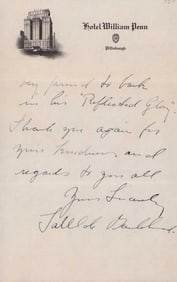 Hotel William Penn
Pittsburgh
very proud to bask
in his "Reflected Glory".
Thank you again for
your kindness and
regards to you all
Yours Sincerely
Tallulah Bankhead